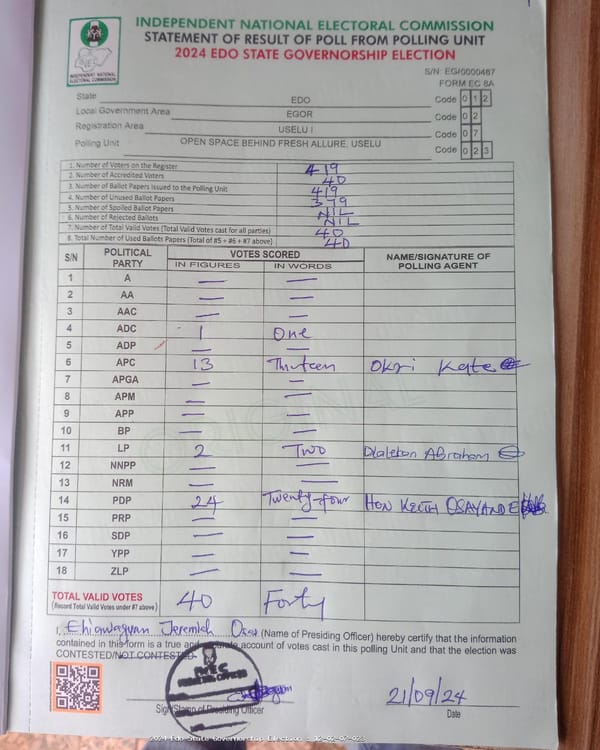 INDEPENDENT NATIONAL ELECTORAL COMMISSION
STATEMENT OF RESULT OF POLL FROM POLLING UNIT
2024 EDO STATE GOVERNORSHIP ELECTION
INDEPENDENT NATIONAL ELECTORAL COMMISSION
S/N: EG/0000467
FORM EC 8A
State EDO Code 0 1 2
Local Government Area EGOR Code 0 2
Registration Area USELU I Code 0 7
Polling Unit OPEN SPACE BEHIND FRESH ALLURE, USELU Code 0 2 3
1. Number of Voters on the Register 419
2. Number of Accredited Voters 40
3. Number of Ballot Papers Issued to the Polling Unit 419
4. Number of Unused Ballot Papers 379
5. Number of Spoiled Ballot Papers NIL
6. Number of Rejected Ballots NIL
7. Number of Total Valid Votes (Total Valid Votes cast for all parties) 40
8. Total Number of Used Ballots Papers (Total of #5 + #6 + #7 above) 40
S/N POLITICAL PARTY VOTES SCORED NAME/SIGNATURE OF POLLING AGENT
IN FIGURES IN WORDS
1 A — —
2 AA — —
3 AAC — —
4 ADC 1 One
5 ADP — —
6 APC 13 Thirteen Okri Kate
7 APGA — —
8 APM — —
9 APP — —
10 BP — —
11 LP 2 Two Abraham
12 NNPP — —
13 NRM — —
14 PDP 24 Twenty-four HON KEITH OSAYANDE
15 PRP — —
16 SDP — —
17 YPP — —
18 ZLP — —
TOTAL VALID VOTES 40 Forty
(Record Total Valid Votes under #7 above)
I, Jeremiah (Name of Presiding Officer) hereby certify that the information
contained in this form is a true and accurate account of votes cast in this polling Unit and that the election was
CONTESTED/NOT CONTESTED
INEC
PRESIDING OFFICER
Sign/Stamp of Presiding Officer
21/09/24
Date
2024 Edo State Governorship Election